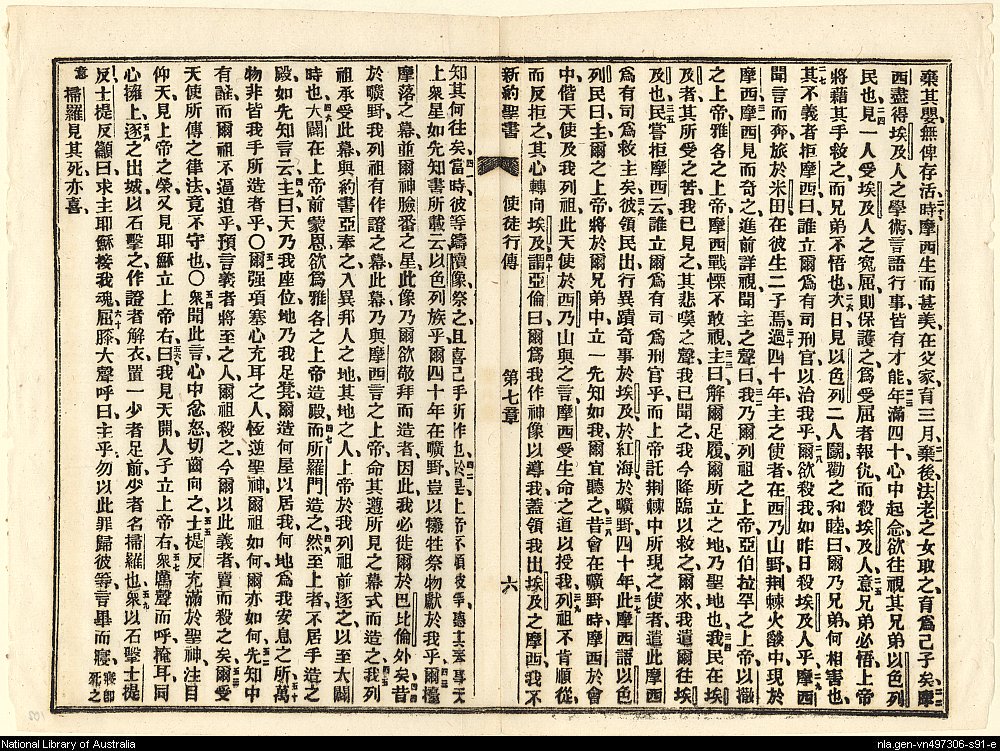 棄其嬰無俾存活時摩西生而甚美在父家有三月棄後法老之女取之育爲己子矣摩
西盡得埃及人之學術言語行事皆有才能年滿四十心中起念欲往視其兄弟以色列
民也見一人受埃及人之寃屈則保護之爲受屈者報仇而殺埃及人意兄弟必悟上帝
將藉其手救之而兄弟不悟也次日見以色列二人鬭勸之和睦曰爾乃兄弟何相害也
其不義者拒摩西曰誰立爾爲有司刑官以治我乎爾欲殺我如昨日殺埃及人乎摩西
聞言而奔旅於米田在彼生二子焉過四十年主之使者在西乃山野荆棘火燄中現於
摩西摩西見而奇之進前詳視聞主之聲曰我乃爾列祖之上帝亞伯拉罕之上帝以撒
之上帝雅各之上帝摩西戰慄不敢視主曰解爾足履爾所立之地乃聖地也我民在埃
及者其所受之苦我已見之其悲嘆之聲我已聞之我今降臨以救之爾來我遣爾往埃
及也民嘗拒摩西云誰立爾爲有司爲刑官乎而上帝託荆棘中所現之使者遣此摩西
爲有司爲救主矣彼領民出行異蹟奇事於埃及於紅海於曠野四十年此摩西語以色
列民曰主爾之上帝將於爾兄弟中立一先知如我爾宜聽之昔會在曠野時摩西於會
中偕天使及我列祖此天使於西乃山與之言摩西受生命之道以授我列祖不肯順從
而反拒之其心轉向埃及謂亞倫曰爾爲我作神像以導我蓋領我出埃及之摩西我不
新約聖書 使徒行傳 第七章 六
知其何往矣當時彼等鑄犢像祭之且喜己手所作也於是上帝不顧彼等聽其奉事天
上衆星如先知書所載云以色列族乎爾四十年在曠野豈以犧牲祭物獻於我乎爾擡
摩落之幕並爾神臉番之星此像乃爾欲敬拜而造者因此我必徙爾於巴比倫外矣昔
於曠野我列祖有作證之幕此幕乃與摩西言之上帝命其遵所見之幕式而造之我列
祖承受此幕與約書亞奉之入異邦人之地其地之人上帝於我列祖前逐之以至大闢
時也大闢在上帝前蒙恩欲爲雅各之上帝造殿而所羅門造之然至上者不居手造之
殿如先知言云主曰天乃我座位地乃我足凳爾造何屋以居我何地爲我安息之所萬
物非皆我手所造者乎〇爾强項塞心充耳之人恆逆聖神爾祖如何爾亦如何先知中
有誰而爾祖不逼迫乎預言義者將至之人爾祖殺之今爾以此義者賣而殺之矣爾受
天使所傳之律法竟不守也〇衆聞此言心中忿怒切齒向之士提反充滿於聖神注目
仰天見上帝之榮又見耶穌立上帝右曰我見天開人子立上帝右衆厲聲而呼掩耳同
心擁上逐之出城以石擊之作證者解衣置一少者足前少者名掃羅也衆以石擊士提
反士提反籲曰求主耶穌接我魂屈膝大聲呼曰主乎勿以此罪歸彼等言畢而寢寢卽死之
意掃羅見其死亦喜
National Library of Australia
nla.gen-vn497306-s91-e